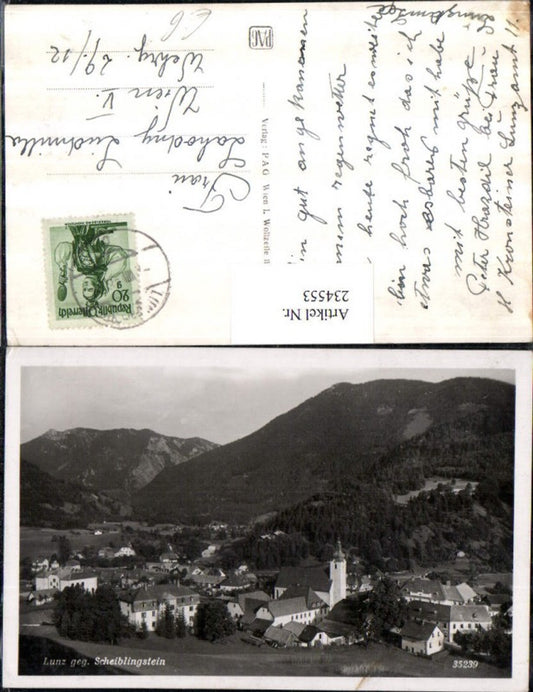 Frau
Zahodny Ludmilla
Wien V.
Wehrg 29/12
PAG
Verlag: PAG Wien I. Wollzeile 11
in gut angekommen
regenwetter
heute regnet es weiter
bin hoch froh das ich
etwas esbares mit habe
mit besten grüße
Peter Hrazdil bei Frau
H Kronsteiner Lunz amt 11
REPUBLIK ÖSTERREICH
20 g
Artikel Nr.
234553
Lunz geg. Scheiblingstein
35239